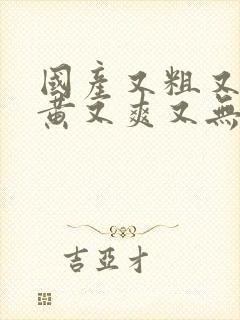 國產又粗又
黃又爽又無
吉亞才